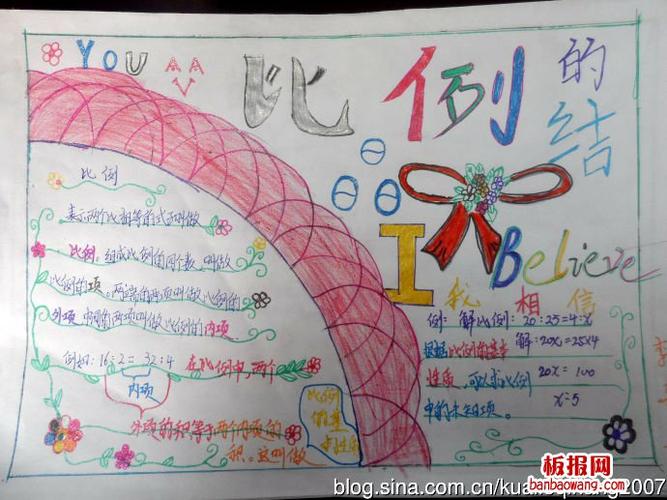 YOU
比例的
结
I Believe
我相信
比例
表示两个比相等的式子叫做
比例。组成比例的四个数,叫做
比例的项。两端的两项叫做比例的
外项,中间的两项叫做比例的内项
例如:16:2=32:4
内项
在比例中,两个
外项的积等于两个内项的
积。这叫做
比例
的基
本性质
例:解比例:20:25=4:x
解:20x=25×4
根据比例的基本
性质,可以求比例
20x=100
中的未知项。
x=5
板报网
banbaowang.com